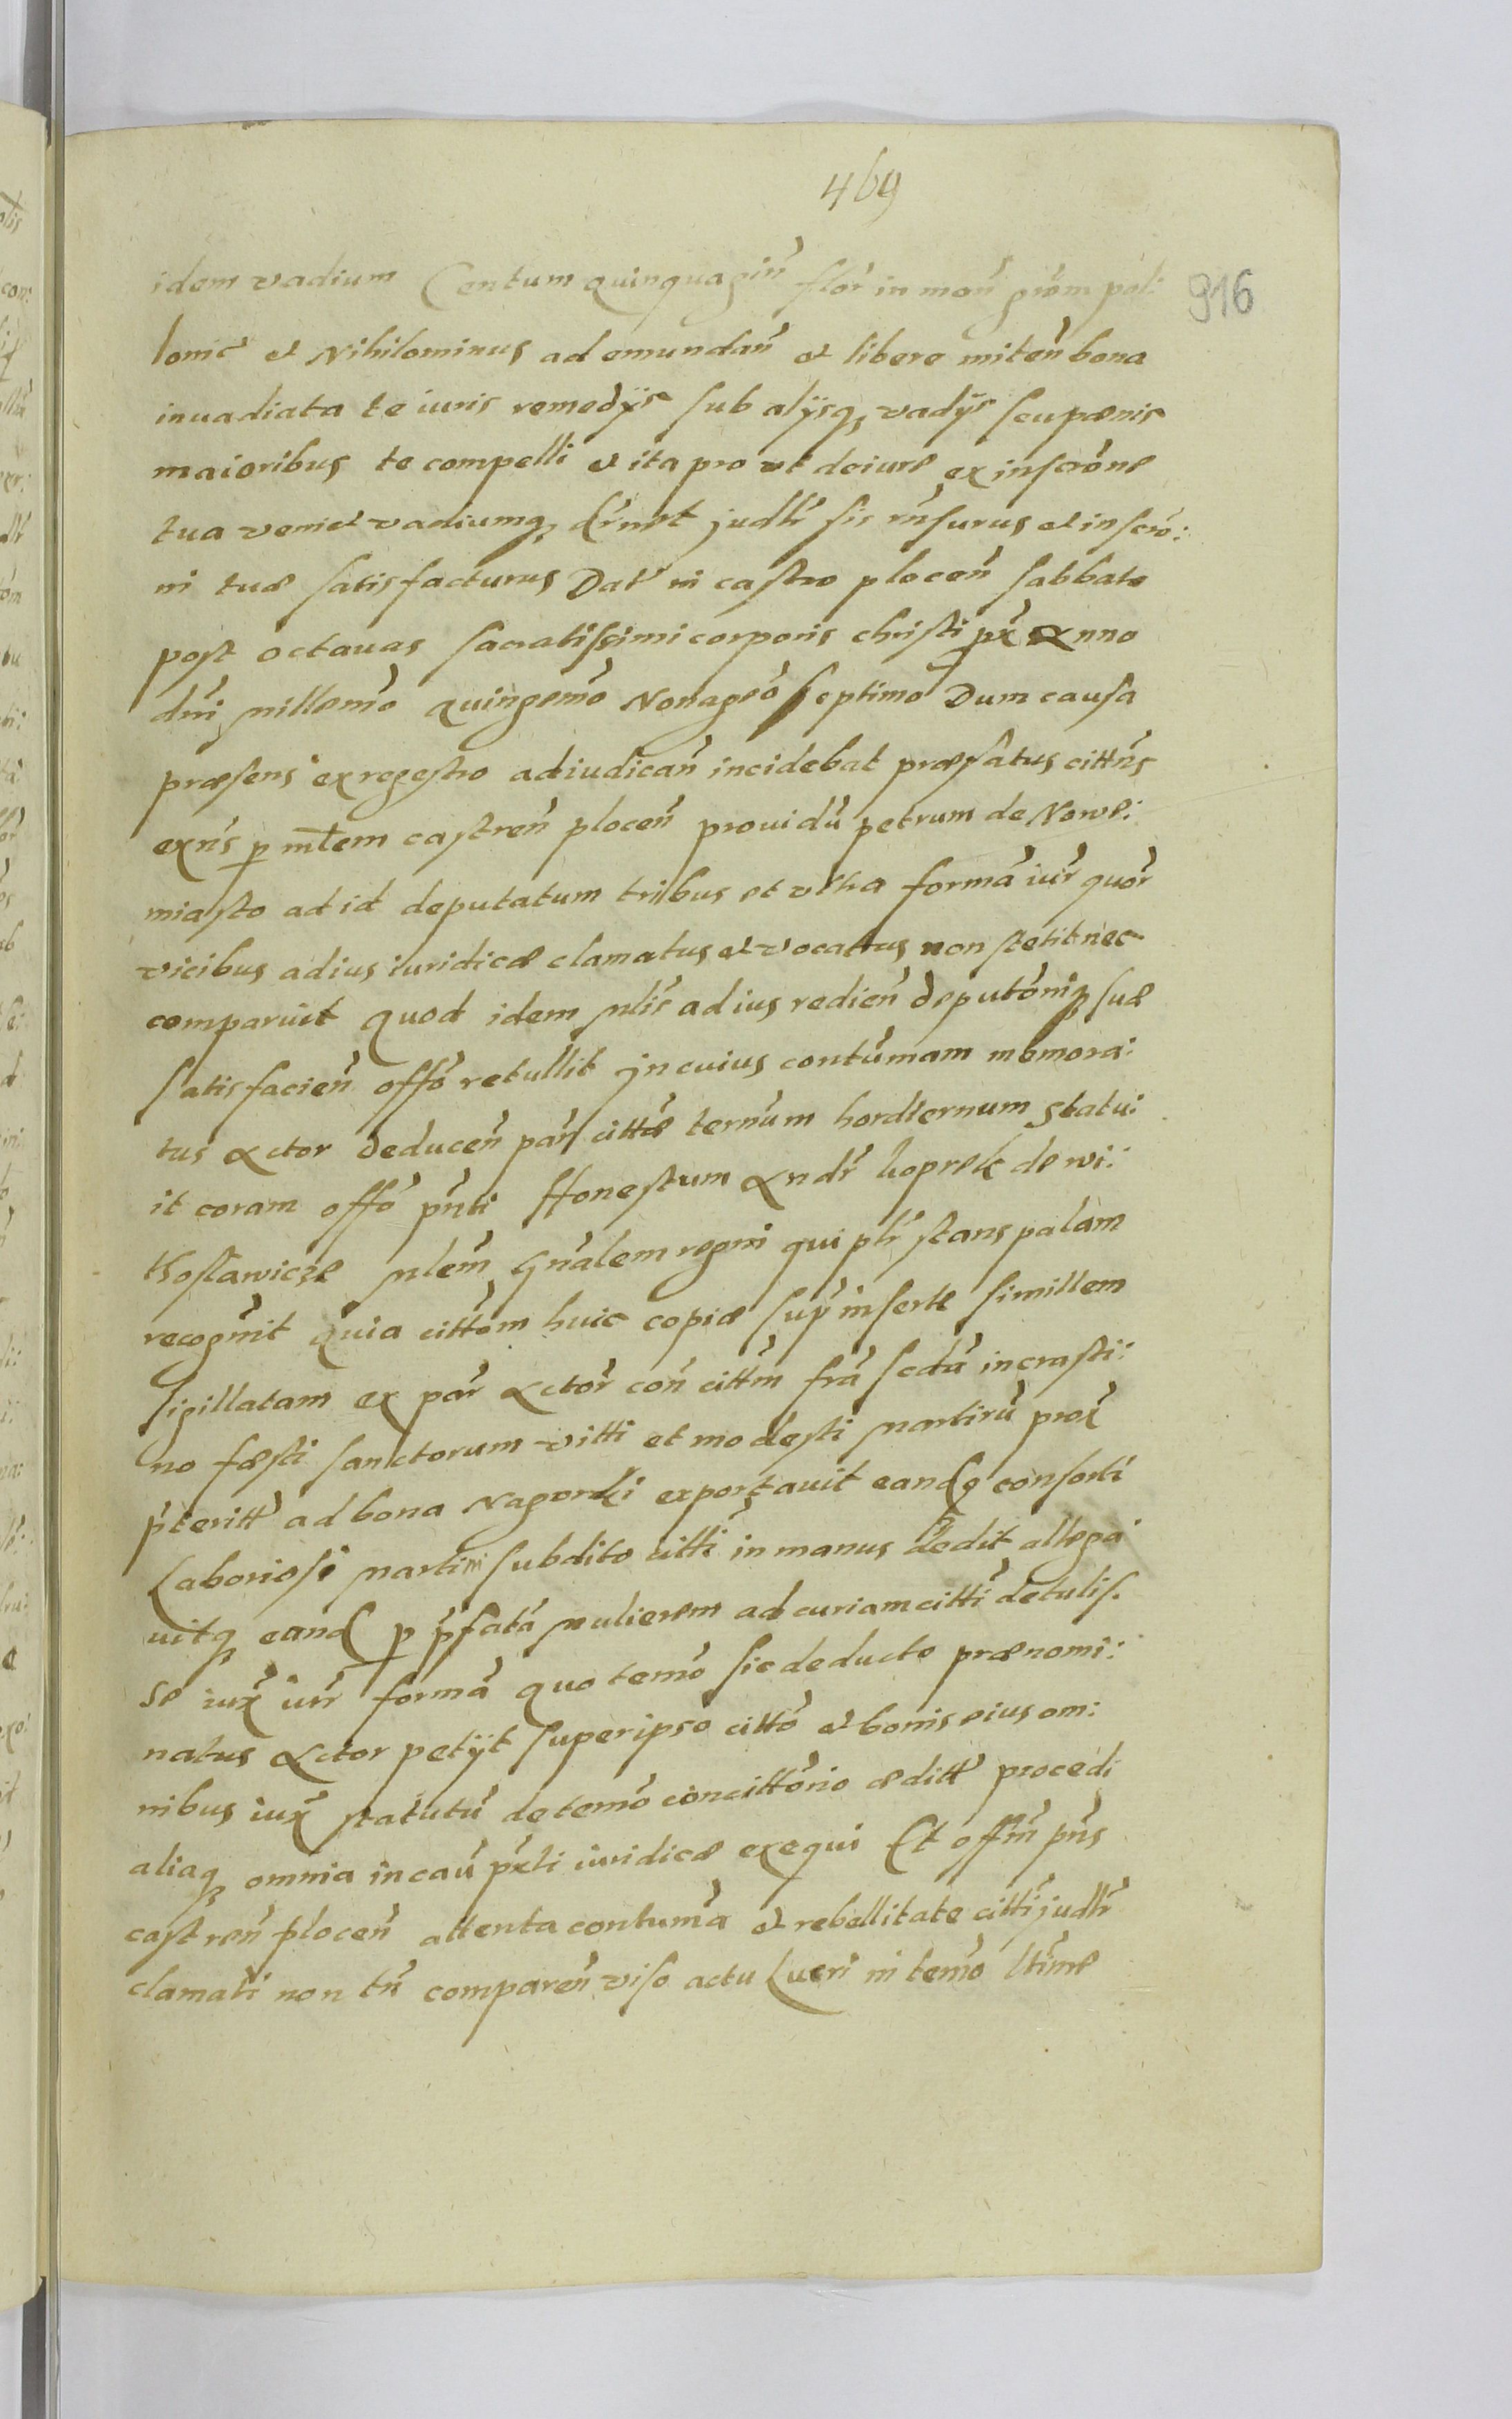 469
916
idem vadium Centum quinquagin̄ flor̄ in mon̄ grōm pol:
lonic̄ et Nihilominus ad emundan̄ et libere miten̄ bona
inuadiata te iuris remedÿs sub alÿsq₃ vadÿs seu pænis
maioribus te compelli et ita pro vt de iure ex inscrōne
tua venict vadiumq₃ judlr̄ sis rn̄surus et in scrō:
ni tuæ satisfacturus Dat̄ in castro plocen̄ sabbato
post octauas sacratissimi corporis christi px̄ Anno
dn̄i millemō quingemō Nonageō septimo Dum causa
præsens ex regestro adiudican̄ incidebat præfatus cittūs
exn̄s p mltem castren̄ plocen̄ prouidū petrum de Nowe:
miasto ad id deputatum tribus et vltra formā iur̄ quor̄
vicibus ad ius iuridicæ clamatus et vocattus non stetit nec
comparuit Quod idem mlis̄ ad ius redien̄ deputōniq₃ suæ
satisfacien̄ offō retullit Jn cuius contūmam memora:
tus Actor deducen̄ pān cittæ ternūm hordiernum statu:
it coram offō pn̄ti Honestum Andr̄ koprek de wi:
kostawicze mlem̄ Gnālem regni qui plr̄ stans palam
recogn̄it quia cittōm huic copiæ sup̄ inserte simillem
sigillatam ex par̄ Actor̄ con̄ cittm̄ frā scdā in crasti:
no fæsti sanctorum vitti et modesti martirū prox̄
p̄teritt̄ ad bona Nagorki exportauit eandq₃ consorti
Laboriosi martini subdito citti in manus dedit allega
uitq₃ eand p p̄fatā mulierem ad curiam citti detulis.
se iux̄ iur̄ formā quo temō sic deducto prænomi:
natus Actor petÿt super ipso cittō et bonis eius om:
nibus iux̄ statutū de temō concittōrio æditt̄ procedi
aliaq₃ omnia in cau p̄xti iuridicæ exequi Et offm̄ pn̄s
castren̄ plocen̄ attenta contumā et rebellitate citti judlr̄
clamati non tn̄ comparen̄ viso actu Lucri in temō ltīme